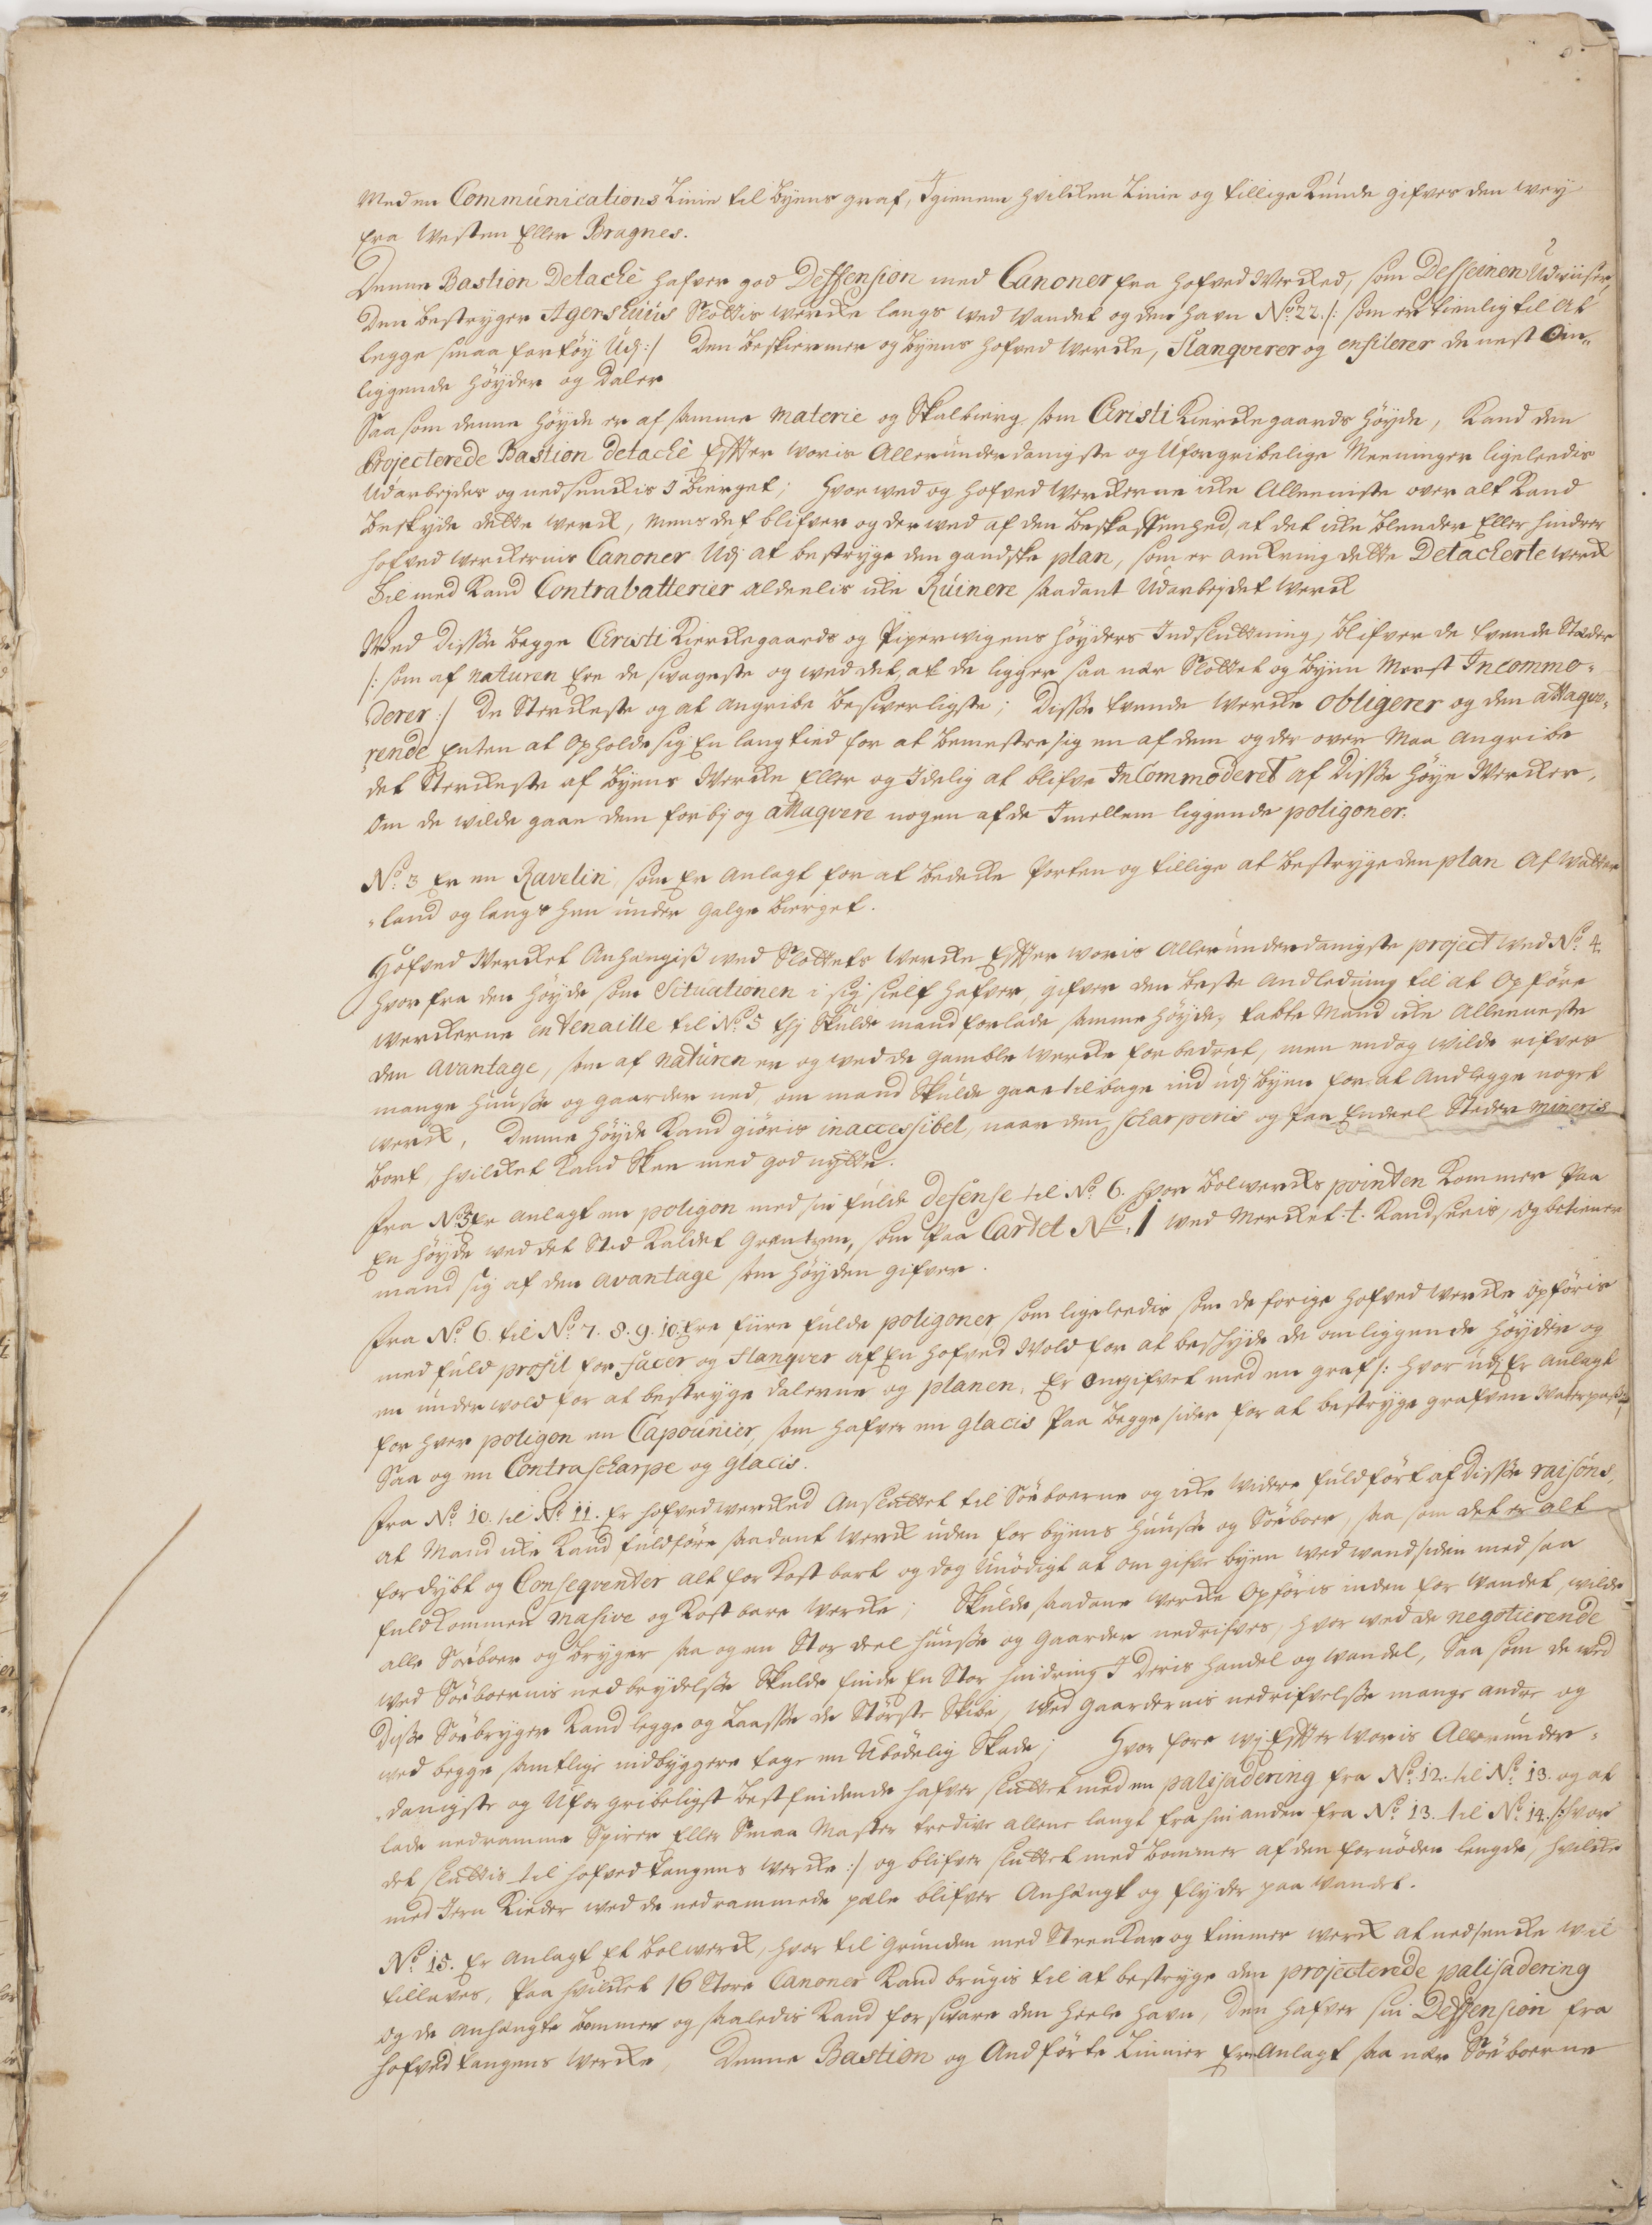 Med en Communications Linie til Byens graf, Igienem hvilcken Linie og tillige Kunde gifves den vey
fra Westen Eller Bragnes.
Denne Bastion Detaché hafver god Deffension med Canoner fra Hofved Wercked, som Desseinen Udwiiser,
Den bestryger Agershuus Slottis wercke langs wed Wandet og den Hafn No: 22. /: som er tienlig til at
legge smaa fartøy Udj :/ Den beskiermer og Byens hofved Wercke, Flanqverer og enfilerer de nest Om„
liggende Høyder og Daler
Saa som denne Høyde er af samme Materie og Skalbierg som Christi Kierckegaards Høyde, Kand den
Projecterede Bastion Detaché Effter woris Allerunderdanigste og Uforgribelige Meeninger ligeleedis
Udarbejdes og nedsenckis I Bierget; Hvor wed og Hofved Werckerne icke Alleeniste over alt Kand
beskyde dette Werck, Mens det blifver og der wed af den Beskaffenhed, at det icke blender Eller hindrer
Hofved Werckernis Canoner Udj at bestryge den gandske plan, som er omkring dette Detacherte Werck
Til med Kand Contrabatterier aldeelis icke Ruinere saadant Udarbejdet Werck
Wed Disse begge Christi Kierckegaards og Piperwigens Høyders Indsluttning, blifver de tvende Stæder
/: som af Naturen Ere de swageste og wed det, at de ligger saa nær Slottet og Byen Meest Incommo=
derer :/ De Sterckeste og at angribe besverligste; Disse tvende Wercke obligerer og den attaqve=
rende Enten at Opholde sig En lang tied for at bemestre sig en af dem og der over Maa Angribe
det Sterckeste af Byens Wercke Eller og Idelig at blifve InCommoderet af Disse Høye Wercker,
Om de wilde gaae dem forbj og attaqvere nogen af de Imellem liggende poligoner.
No: 3 Er en Ravelin, som Er Anlagt for at bedecke Porten og tillige at bestryge den plan Af Watter
„land og langs hen under Galge Bierget.
Hofved Wercket Anhengis wed Slottets Wercke Effter woris Allerunderdanigste project wed No: 4.
Hvor fra den Høyde som Situationen i sig self hafver, gifver den beste Andledning til at Opføre
Werckerne en tenaille til No: 5 Ej Skulde mand forlade samme Høyde, tabte Mand icke Alleeneste
den Avantage, som af Naturen er og wed de gamble Wercke forbedret, men endog wilde rifves
mange Huusse og Gaarder ned, om mand Skulde gaae tilbage ind udj Byen for at Andlegge noget
Werck, Denne Høyde Kand giøris inaccessibel, naar den scharperis og Paa Endeel Stæder mineris
bort, hvilcket Kand Skee med god nytte.
Fra No: 5 Er Anlagt en poligon med sin fulde defense til No: 6. Hvor Bolwercks pointen Kommer Paa
En Høyde wed det Sted Kaldet Grentzen, som Paa Cartet No: 1 wed Mercket .t. Kand seeis, Og betiener
mand sig af den avantage som Høyden gifver.
Fra No: 6. til No: 7. 8. 9. 10. Ere fiire fulde poligoner som ligeleedis som de forige Hofved Wercke Opføris
med fuld profil for facer og Flanqver af En Hofved Wold for at beskyde de omliggende Høyder og
en under wold for at bestryge Dalerne og planen, Er Omgifvet med en graf /: hvor udj Er Anlagt
for hver poligon en Capounier, som hafver en glacis Paa begge sider for at bestryge grafven Waterpas :/
Saa og en Contrascharpe og glacis.
Fra No: 10. til No: 11. Er Hofvedwercked Ansluttet til Søeboerne og icke widere fuldført af Disse raisons,
at Mand icke Kand fuldføre saadant Werck uden for byens Huusse og Søeboer, saa som det er alt
for dybt og Conseqventer alt for Kostbart og dog Unødigt at omgifve byen wed wandsiden med saa
fuldkommen masive og Kostbare Wercke; Skulde saadane Wercke Opføris inden for Wandet, wilde
alle Søeboer og Brygger saa og en Stor deel Huusse og Gaarder nedrifves, hvor wed de negotierende
wed Søeboernis nedbrydelse Skulde finde En Stor hindring I deris Handel og wandel, Saa som de wed
Disse Søebrygger Kand legge og Laasse de Største Skibe, Wed Gaardernis nedrifvelse mange andre og
wed begge samtlige indbyggere tage en Ubodelig Skade; Hvor fore wj Effter woris Allerunder=
„danigste og Uforgribeligst befindende hafver sluttet med en palisadering fra No: 12. til No: 13. og at
lade nedramme Spirer Eller Smaa Master tredive allene langt fra hin anden fra No: 13. til No: 14. /: hvor
det sluttis til Hofved tangens Wercke :/ og blifver sluttet med bommer af den fornøden lengde, hvilcke
med Jern Kieder wed de nedrammede pæle blifver Anhengt og flyder paa wandet.
No: 15. Er Anlagt Et Bolwerck, hvor til Grunden med Steenkar og timmer werck at nedsencke wil
tillaves, Paa hvilcket 16 Store Canoner Kand brugis til at bestryge den projecterede palisadering
og de Anhengte bommer og saaledis Kand forsvare den heele Havn, den hafver sin Deffension fra
Hofvedtangens Wercke, Denne Bastion og Andførte Linier Ere Anlagt saa nær Søeboerne